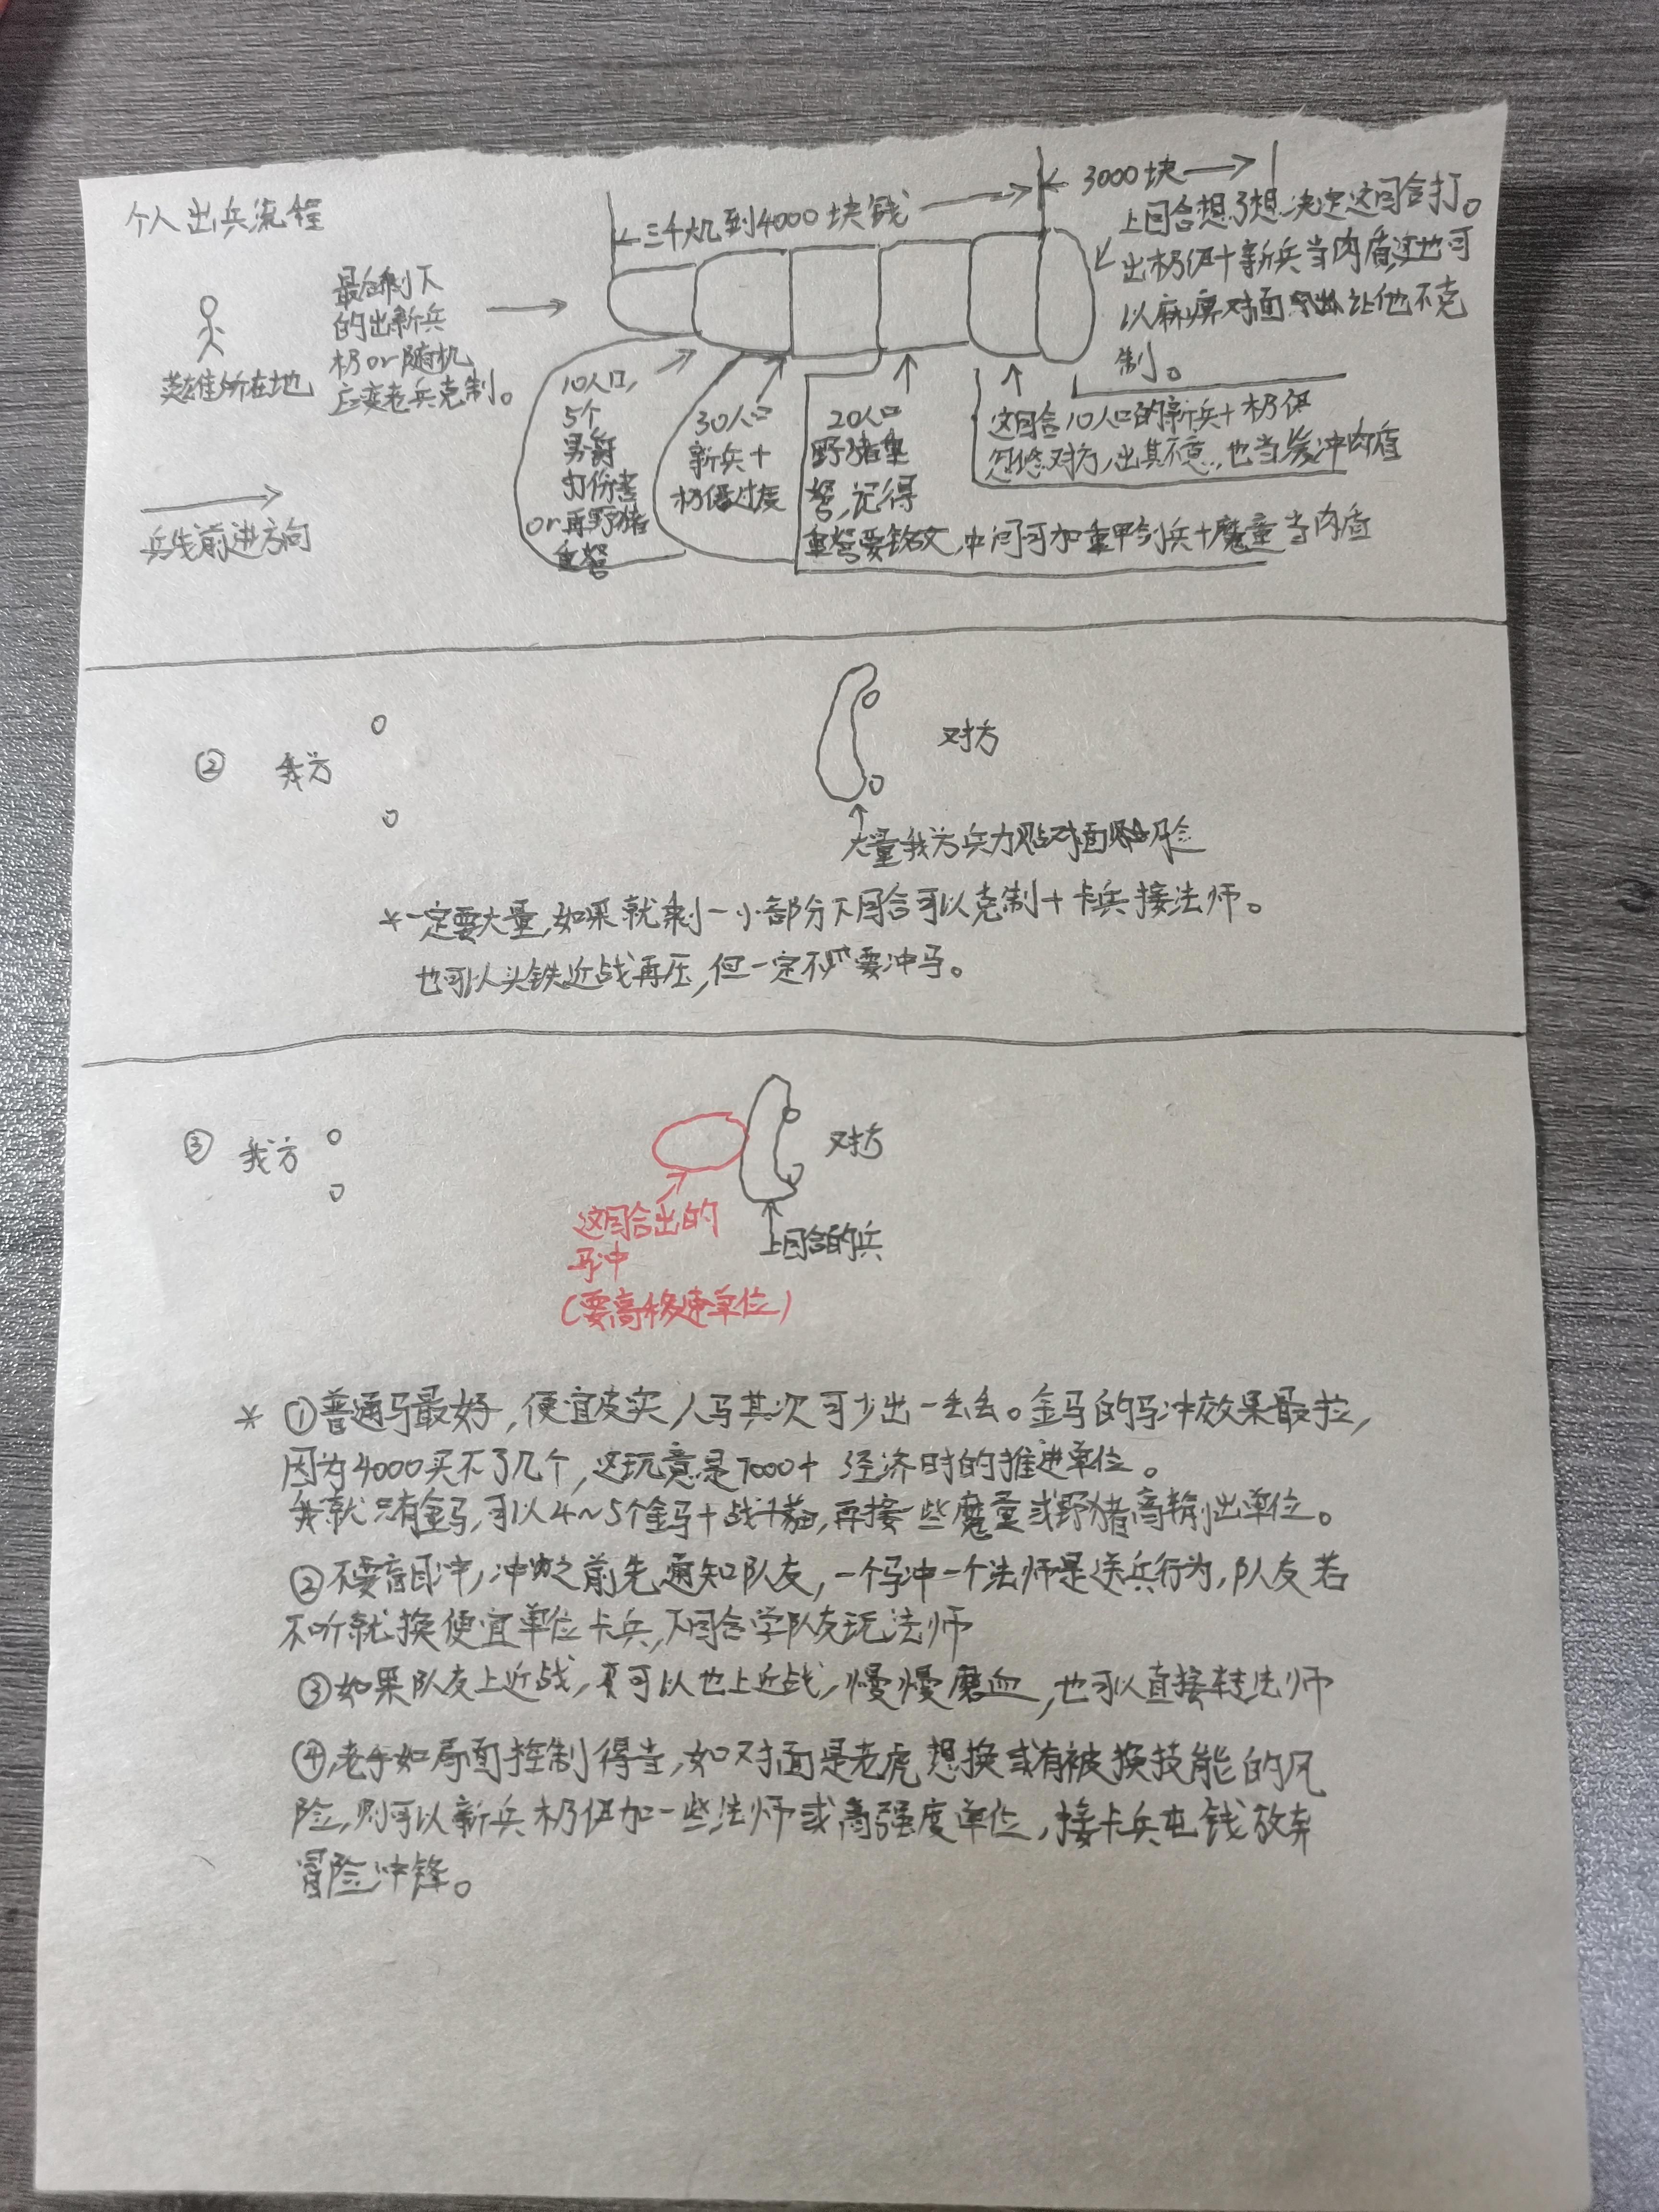 个人出兵流程
三千大几到4000块钱
3000块
上回合想了想决定这回合打。
出机伍+新兵当肉盾,这也可
以麻痹对面 让他不克
制。
英雄所在地
最后剩下
的出新兵
机or随机
应变老兵克制。
兵线前进方向
10人口,
5个
男爵
打伤害
or再野猪
重弩
30人口
新兵+
机伍过度
20人口
野猪重
弩,记得
重弩要铭文,中间可加重甲剑兵+魔童当肉盾
这回合10人口的新兵+机伍
对方,出其不意,也当缓冲肉盾
② 我方
对方
大量我方兵力贴对面 脸
*一定要大量,如果就剩一小部分下回合可以克制+卡兵接法师。
也可以头铁近战再压,但一定不要冲马。
③ 我方
对方
这回合出的
马冲
(要高移速单位)
上回合的兵
* ①普通马最好,便宜皮实人马其次可少出一丢丢。金马的马冲效果最拉,
因为4000买不了几个,这玩意是7000+ 经济时的推进单位。
我就只有金马,可以4~5个金马+战斗猫,再接一些魔童或野猪高输出单位。
②不要盲目冲,冲 之前先通知队友,一个马冲一个法师是送兵行为,队友若
不听就换便宜单位卡兵,下回合学队友玩法师
③如果队友上近战,可以也上近战,慢慢磨血,也可以直接转法师
④老手如局面控制得当,如对面是老虎想换或有被换技能的风
险,则可以新兵机伍加一些法师或高强度单位,接卡兵屯钱放弃
冒险冲锋。